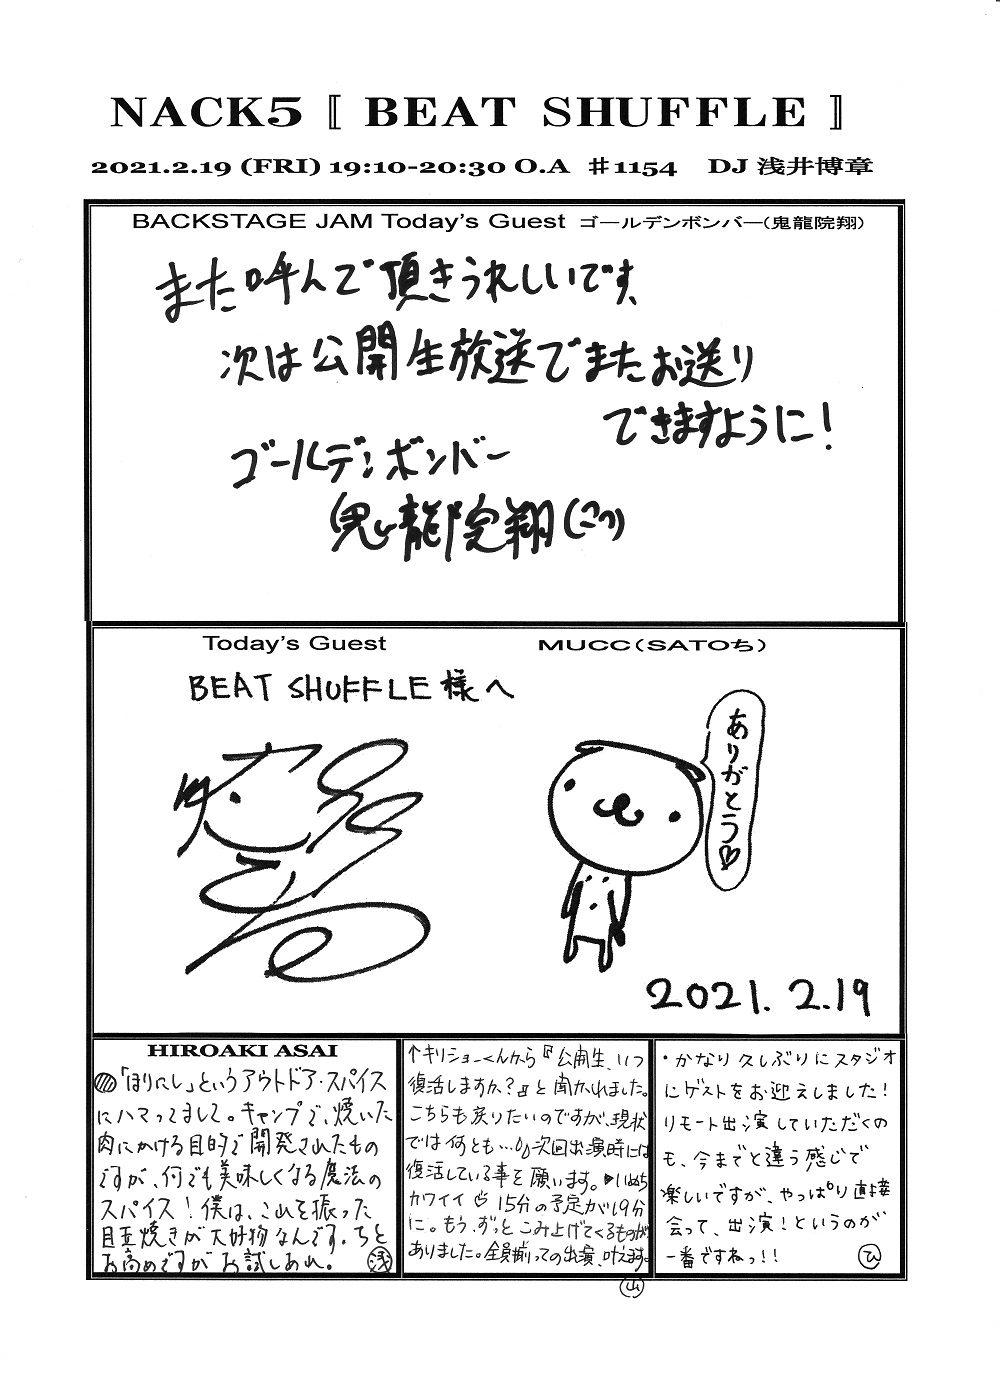 NACK5 〚 BEAT SHUFFLE 〛
2021.2.19 (FRI) 19:10-20:30 O.A ♯1154 DJ 浅井博章
BACKSTAGE JAM Today's Guest ゴールデンボンバー(鬼龍院翔)
また呼んで頂きうれしいです、
次は公開生放送でまたお送り
できますように!
ゴールデンボンバー
鬼龍院翔
Today's Guest MUCC(SATOち)
BEAT SHUFFLE様へ
ありがとう♡
2021.2.19
HIROAKI ASAI
「ほりにし」というアウトドア・スパイス
にハマってまして。キャンプで、焼いた
肉にかける目的で開発されたもの
ですが、何でも美味しくなる魔法の
スパイス!僕は、これを振った
目玉焼きが大好物なんです。ちと
お高めですがお試しあれ。 浅
↑キリショーくんから『公開生、いつ
復活しますか?』と聞かれました。
こちらも戻りたいのですが、現状
では何とも…次回出演時には
復活している事を願います。▶
カワイイ 15分の予定が19分
に。もう、ずっとこみ上げてくるものが
ありました。全員揃っての出演、叶えます。
山
・かなり久しぶりにスタジオ
にゲストをお迎えしました!
リモート出演していただくの
も、今までと違う感じで
楽しいですが、やっぱり直接
会って、出演!というのが
一番ですねっ!! ひ